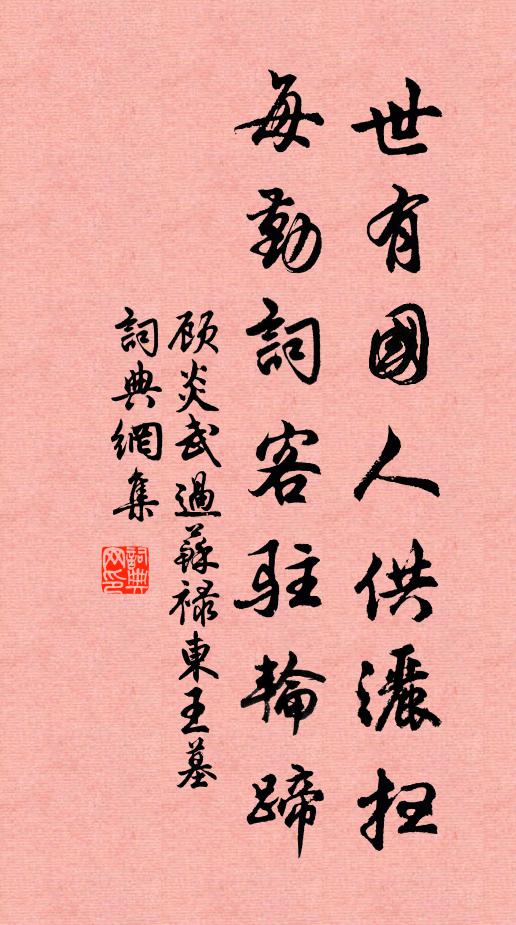 世有國人供灑扫
每勤詞客駐輪蹄
顾炎武過蘇禄東王墓
詞典網集
詞典网印